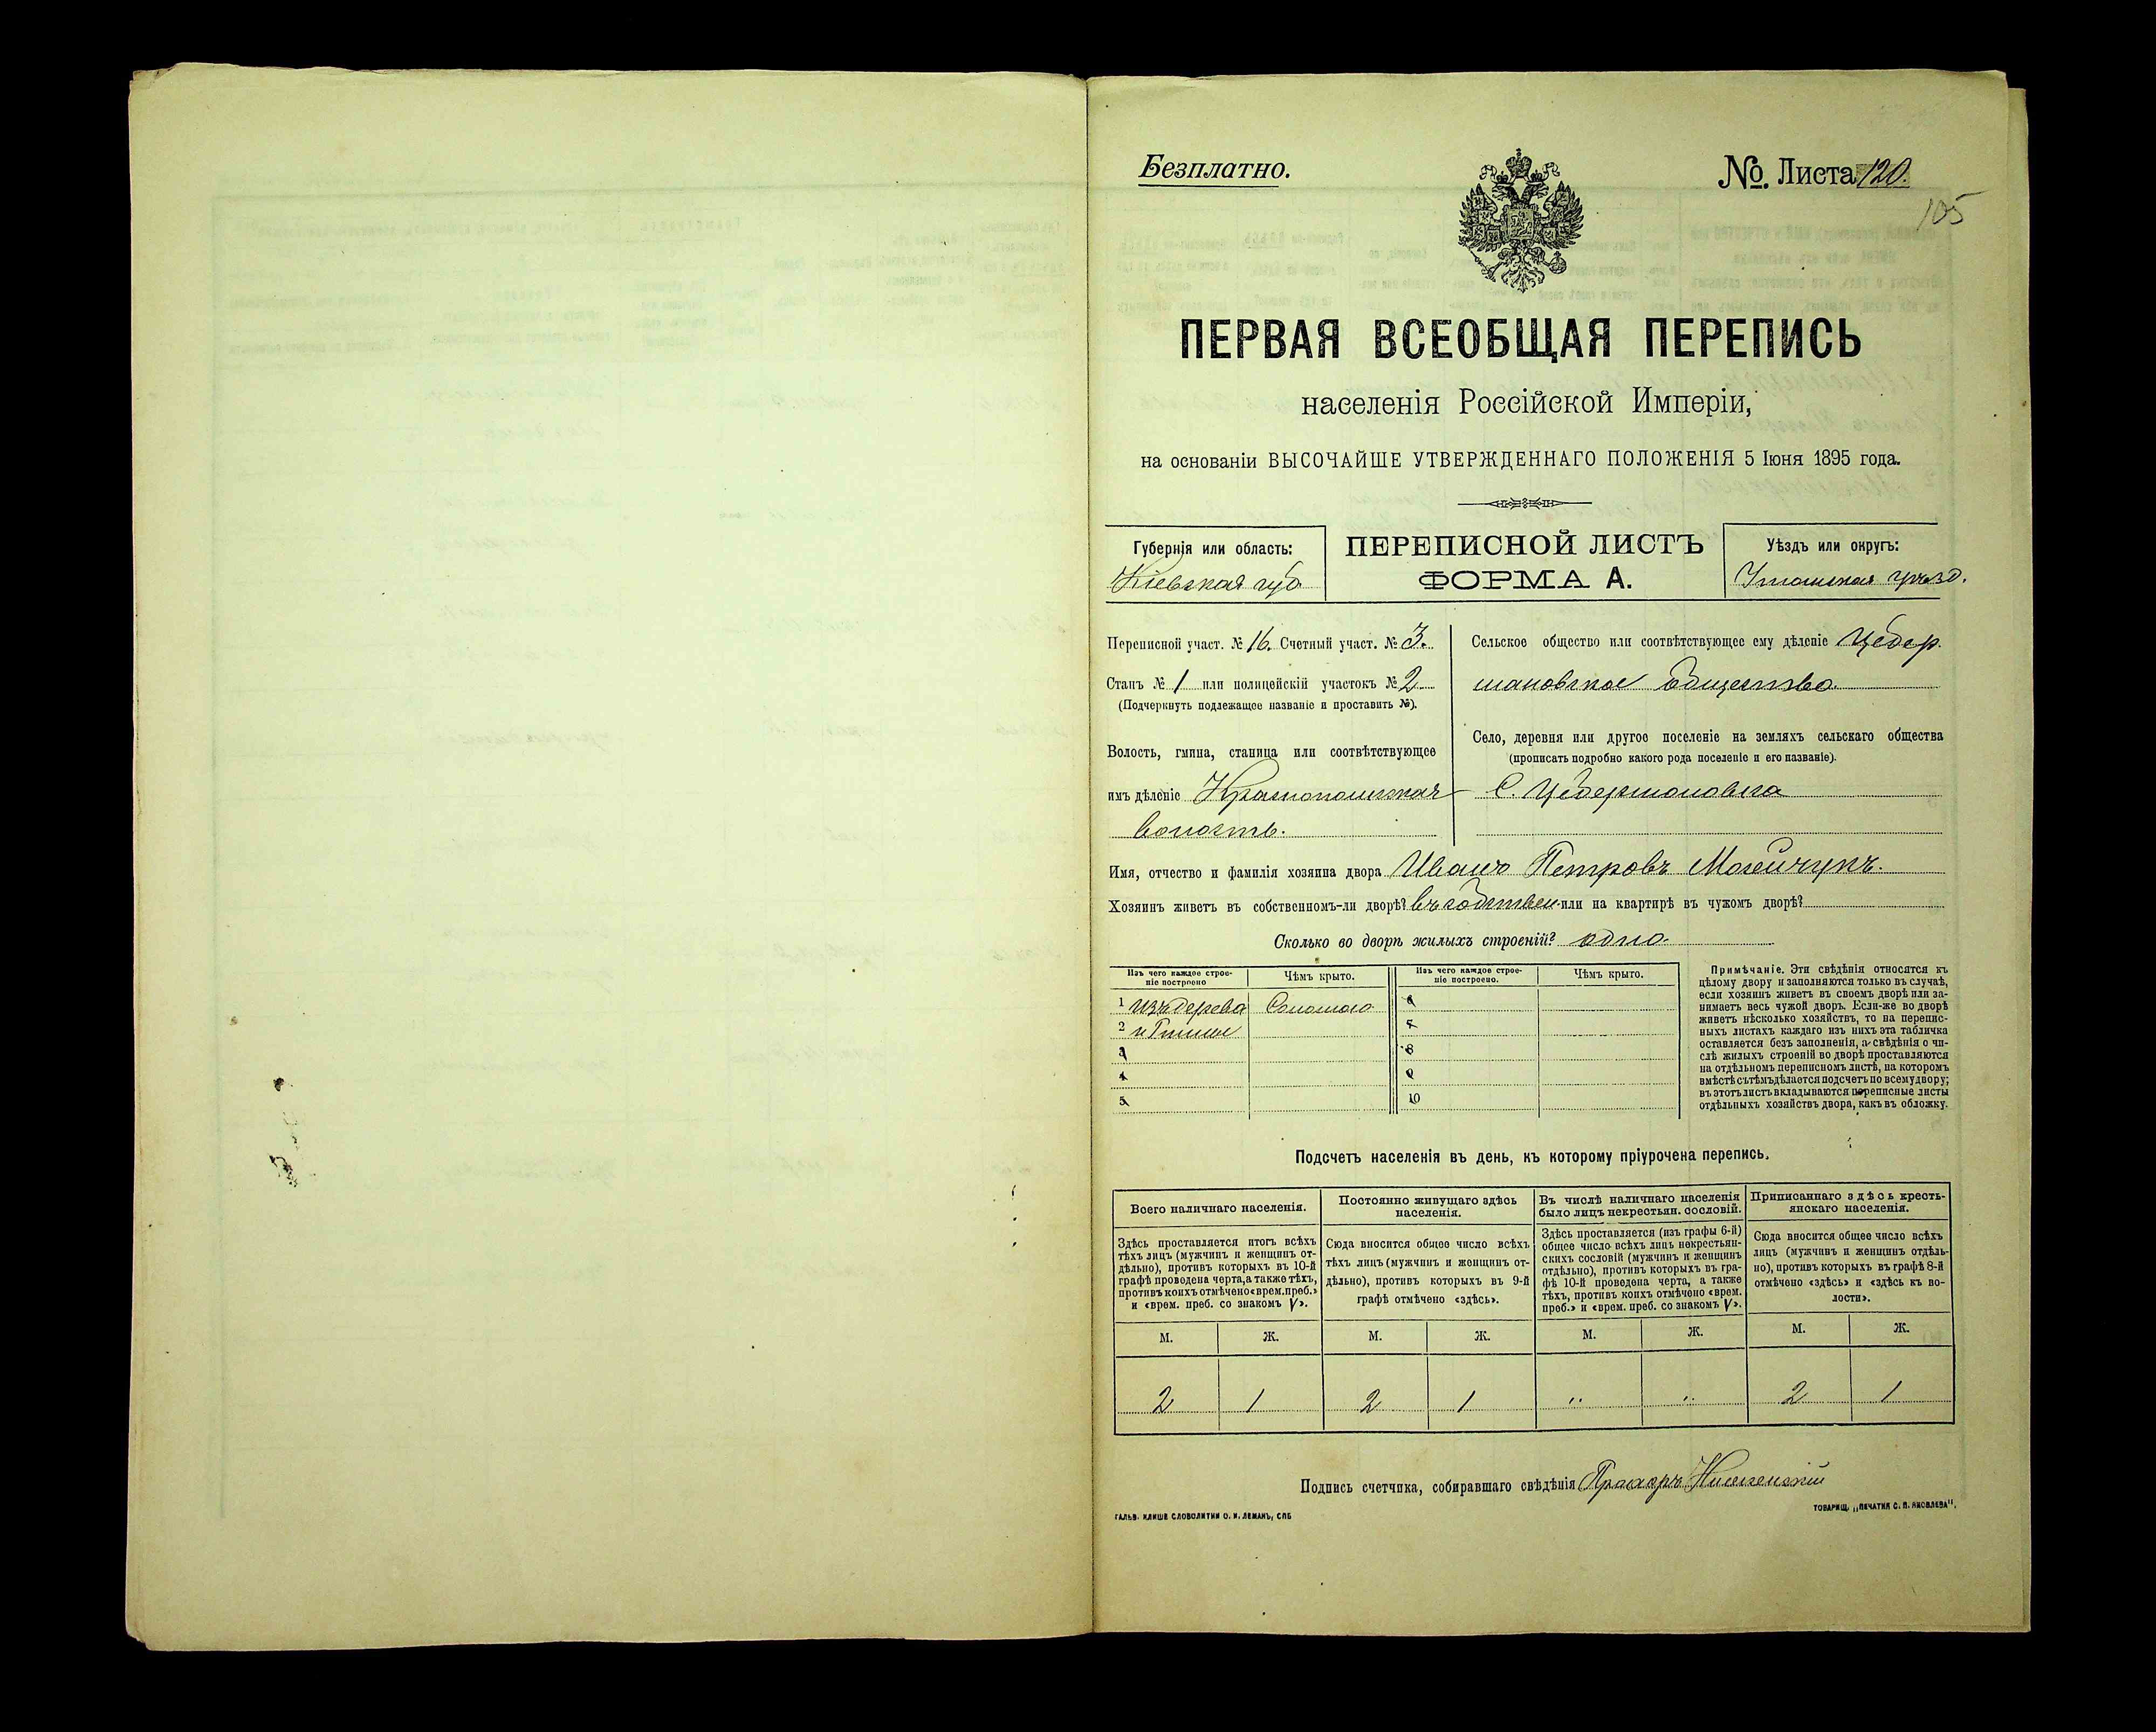 Безплатно.
№. Листа 120.
105
ПЕРВАЯ ВСЕОБЩАЯ ПЕРЕПИСЬ
населенія Россійской Имперіи,
на основаніи ВЫСОЧАЙШЕ УТВЕРЖДЕННАГО ПОЛОЖЕНІЯ 5 Іюня 1895 года.
Губернія или область:
Кіевская губ
ПЕРЕПИСНОЙ ЛИСТЪ
ФОРМА А.
Уѣздъ или округъ:
Уманская уѣзд.
Переписной участ. № 16. Счетный участ. № 3.
Станъ № 1 или полицейскій участокъ № 2
(Подчеркнуть подлежащее названіе и проставить №).
Волость, гмина, станица или соотвѣтствующее
имъ дѣленіе Краснопольская
волость.
Сельское общество или соотвѣтствующее ему дѣленіе Цебер
мановское общество.
Село, деревня или другое поселеніе на земляхъ сельскаго общества
(прописать подробно какого рода поселеніе и его названіе).
С. Цебермановка
Имя, отчество и фамилія хозяина двора Иванъ Петровъ Мосейчукъ.
Хозяинъ живетъ въ собственномъ-ли дворѣ? въ собствен. или на квартирѣ въ чужомъ дворѣ?
Сколько во дворѣ жилыхъ строеній? одно.
Изъ чего каждое строе-
ніе построено
Чѣмъ крыто.
Изъ чего каждое строе-
ніе построено.
Чѣмъ крыто.
1 изъ дерева Соломою 6
2 и Глины 7
3 8
4 9
5 10
Примѣчаніе. Эти свѣдѣнія относятся къ
цѣлому двору и заполняются только въ случаѣ,
если хозяинъ живетъ въ своемъ дворѣ или за-
нимаетъ весь чужой дворъ. Если-же во дворѣ
живетъ нѣсколько хозяйствъ, то на перепис-
ныхъ листахъ каждаго изъ нихъ эта табличка
оставляется безъ заполненія, а свѣдѣнія о чи-
слѣ жилыхъ строеній во дворѣ проставляются
на отдѣльномъ переписномъ листѣ, на которомъ
вмѣстѣ съ тѣмъ дѣлается подсчетъ по всему двору;
въ этотъ листъ вкладываются переписные листы
отдѣльныхъ хозяйствъ двора, какъ въ обложку.
Подсчетъ населенія въ день, къ которому пріурочена перепись.
Всего наличнаго населенія.
Постоянно живущаго здѣсь
населенія.
Въ числѣ наличнаго населенія
было лицъ некрестьян. сословій.
Приписаннаго здѣсь кресть-
янскаго населенія.
Здѣсь проставляется итогъ всѣхъ
тѣхъ лицъ (мужчинъ и женщинъ от-
дѣльно), противъ которыхъ въ 10-й
графѣ проведена черта, а также тѣхъ,
противъ коихъ отмѣчено «врем. преб.»
и «врем. преб. со знакомъ V».
Сюда вносится общее число всѣхъ
тѣхъ лицъ (мужчинъ и женщинъ от-
дѣльно), противъ которыхъ въ 9-й
графѣ отмѣчено «здѣсь».
Здѣсь проставляется (изъ графы 6-й)
общее число всѣхъ лицъ некрестьян-
скихъ сословій (мужчинъ и женщинъ
отдѣльно), противъ которыхъ въ гра-
фѣ 10-й проведена черта, а также
тѣхъ, противъ коихъ отмѣчено «врем.
преб.» и «врем. преб. со знакомъ V».
Сюда вносится общее число всѣхъ
лицъ (мужчинъ и женщинъ отдѣль-
но), противъ которыхъ въ графѣ 8-й
отмѣчено «здѣсь» и «здѣсь къ во-
лости».
М. Ж. М. Ж. М. Ж. М. Ж.
2 1 2 1 " " 2 1
Подпись счетчика, собиравшаго свѣдѣнія
ГАЛЬВ. КЛИШЕ СЛОВОЛИТНИ О. И. ЛЕМАНЪ, СПБ
ТОВАРИЩ. „ПЕЧАТНЯ С. П. ЯКОВЛЕВА".